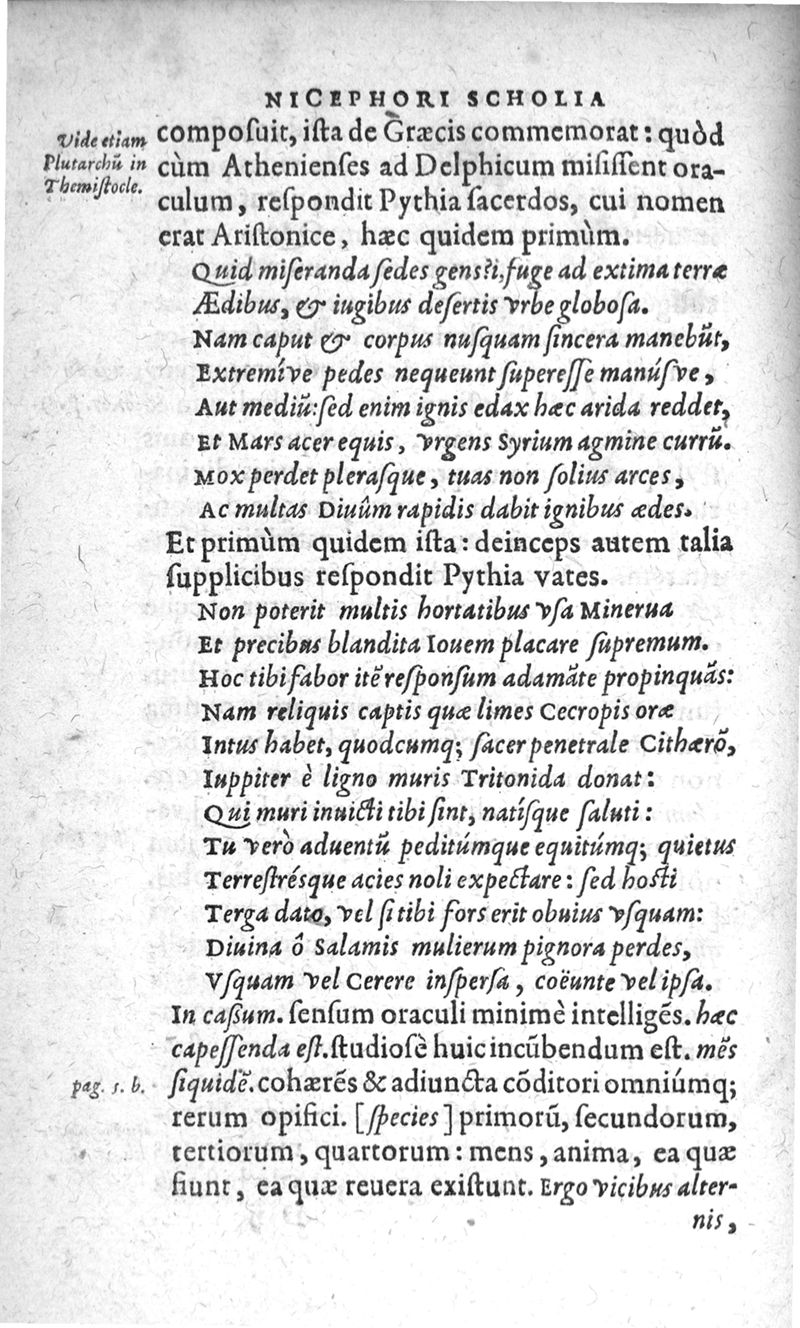 NICEPHORI SCHOLIA
Vide etiam
Plutarchũ in
Themiſtocle.
compoſuit, iſta de Græcis commemorat: quòd
cùm Athenienſes ad Delphicum miſiſſent ora-
culum, reſpondit Pythia ſacerdos, cui nomen
erat Ariſtonice, hæc quidem primùm.
Quid miſeranda ſedes gens? i, fuge ad extima terræ
Ædibus, & iugibus deſertis vrbe globoſa.
Nam caput & corpus nuſquam ſincera manebũt,
Extremíve pedes nequeunt ſupereſſe manúſve,
Aut mediũ: ſed enim ignis edax hæc arida reddet,
Et Mars acer equis, vrgens Syrium agmine currũ.
Mox perdet pleraſque, tuas non ſolius arces,
Ac multas Diuûm rapidis dabit ignibus ædes.
Et primùm quidem iſta: deinceps autem talia
ſupplicibus reſpondit Pythia vates.
Non poterit multis hortatibus vſa Minerua
Et precibus blandita Iouem placare ſupremum.
Hoc tibi fabor itẽ reſponſum adamãte propinquãs:
Nam reliquis captis quæ limes Cecropis oræ
Intus habet, quodcumq; ſacer penetrale Cithærõ,
Iuppiter è ligno muris Tritonida donat:
Qui muri inuicti tibi ſint, natíſque ſaluti:
Tu verò aduentũ peditúmque equitúmq; quietus
Terreſtréſque acies noli expectare: ſed hoſti
Terga dato, vel ſi tibi fors erit obuius vſquam:
Diuina ô Salamis mulierum pignora perdes,
Vſquam vel Cerere inſperſa, coëunte vel ipſa.
In caßum. ſenſum oraculi minimè intelligẽs. hæc
capeſſenda eſt. ſtudioſè huic incũbendum eſt. mẽs
pag. 5. b.
ſiquidẽ. cohærẽs & adiuncta cõditori omniúmq;
rerum opifici. [ſpecies] primorũ, ſecundorum,
tertiorum, quartorum: mens, anima, ea quæ
fiunt, ea quæ reuera exiſtunt. Ergo vicibus alter-
nis,